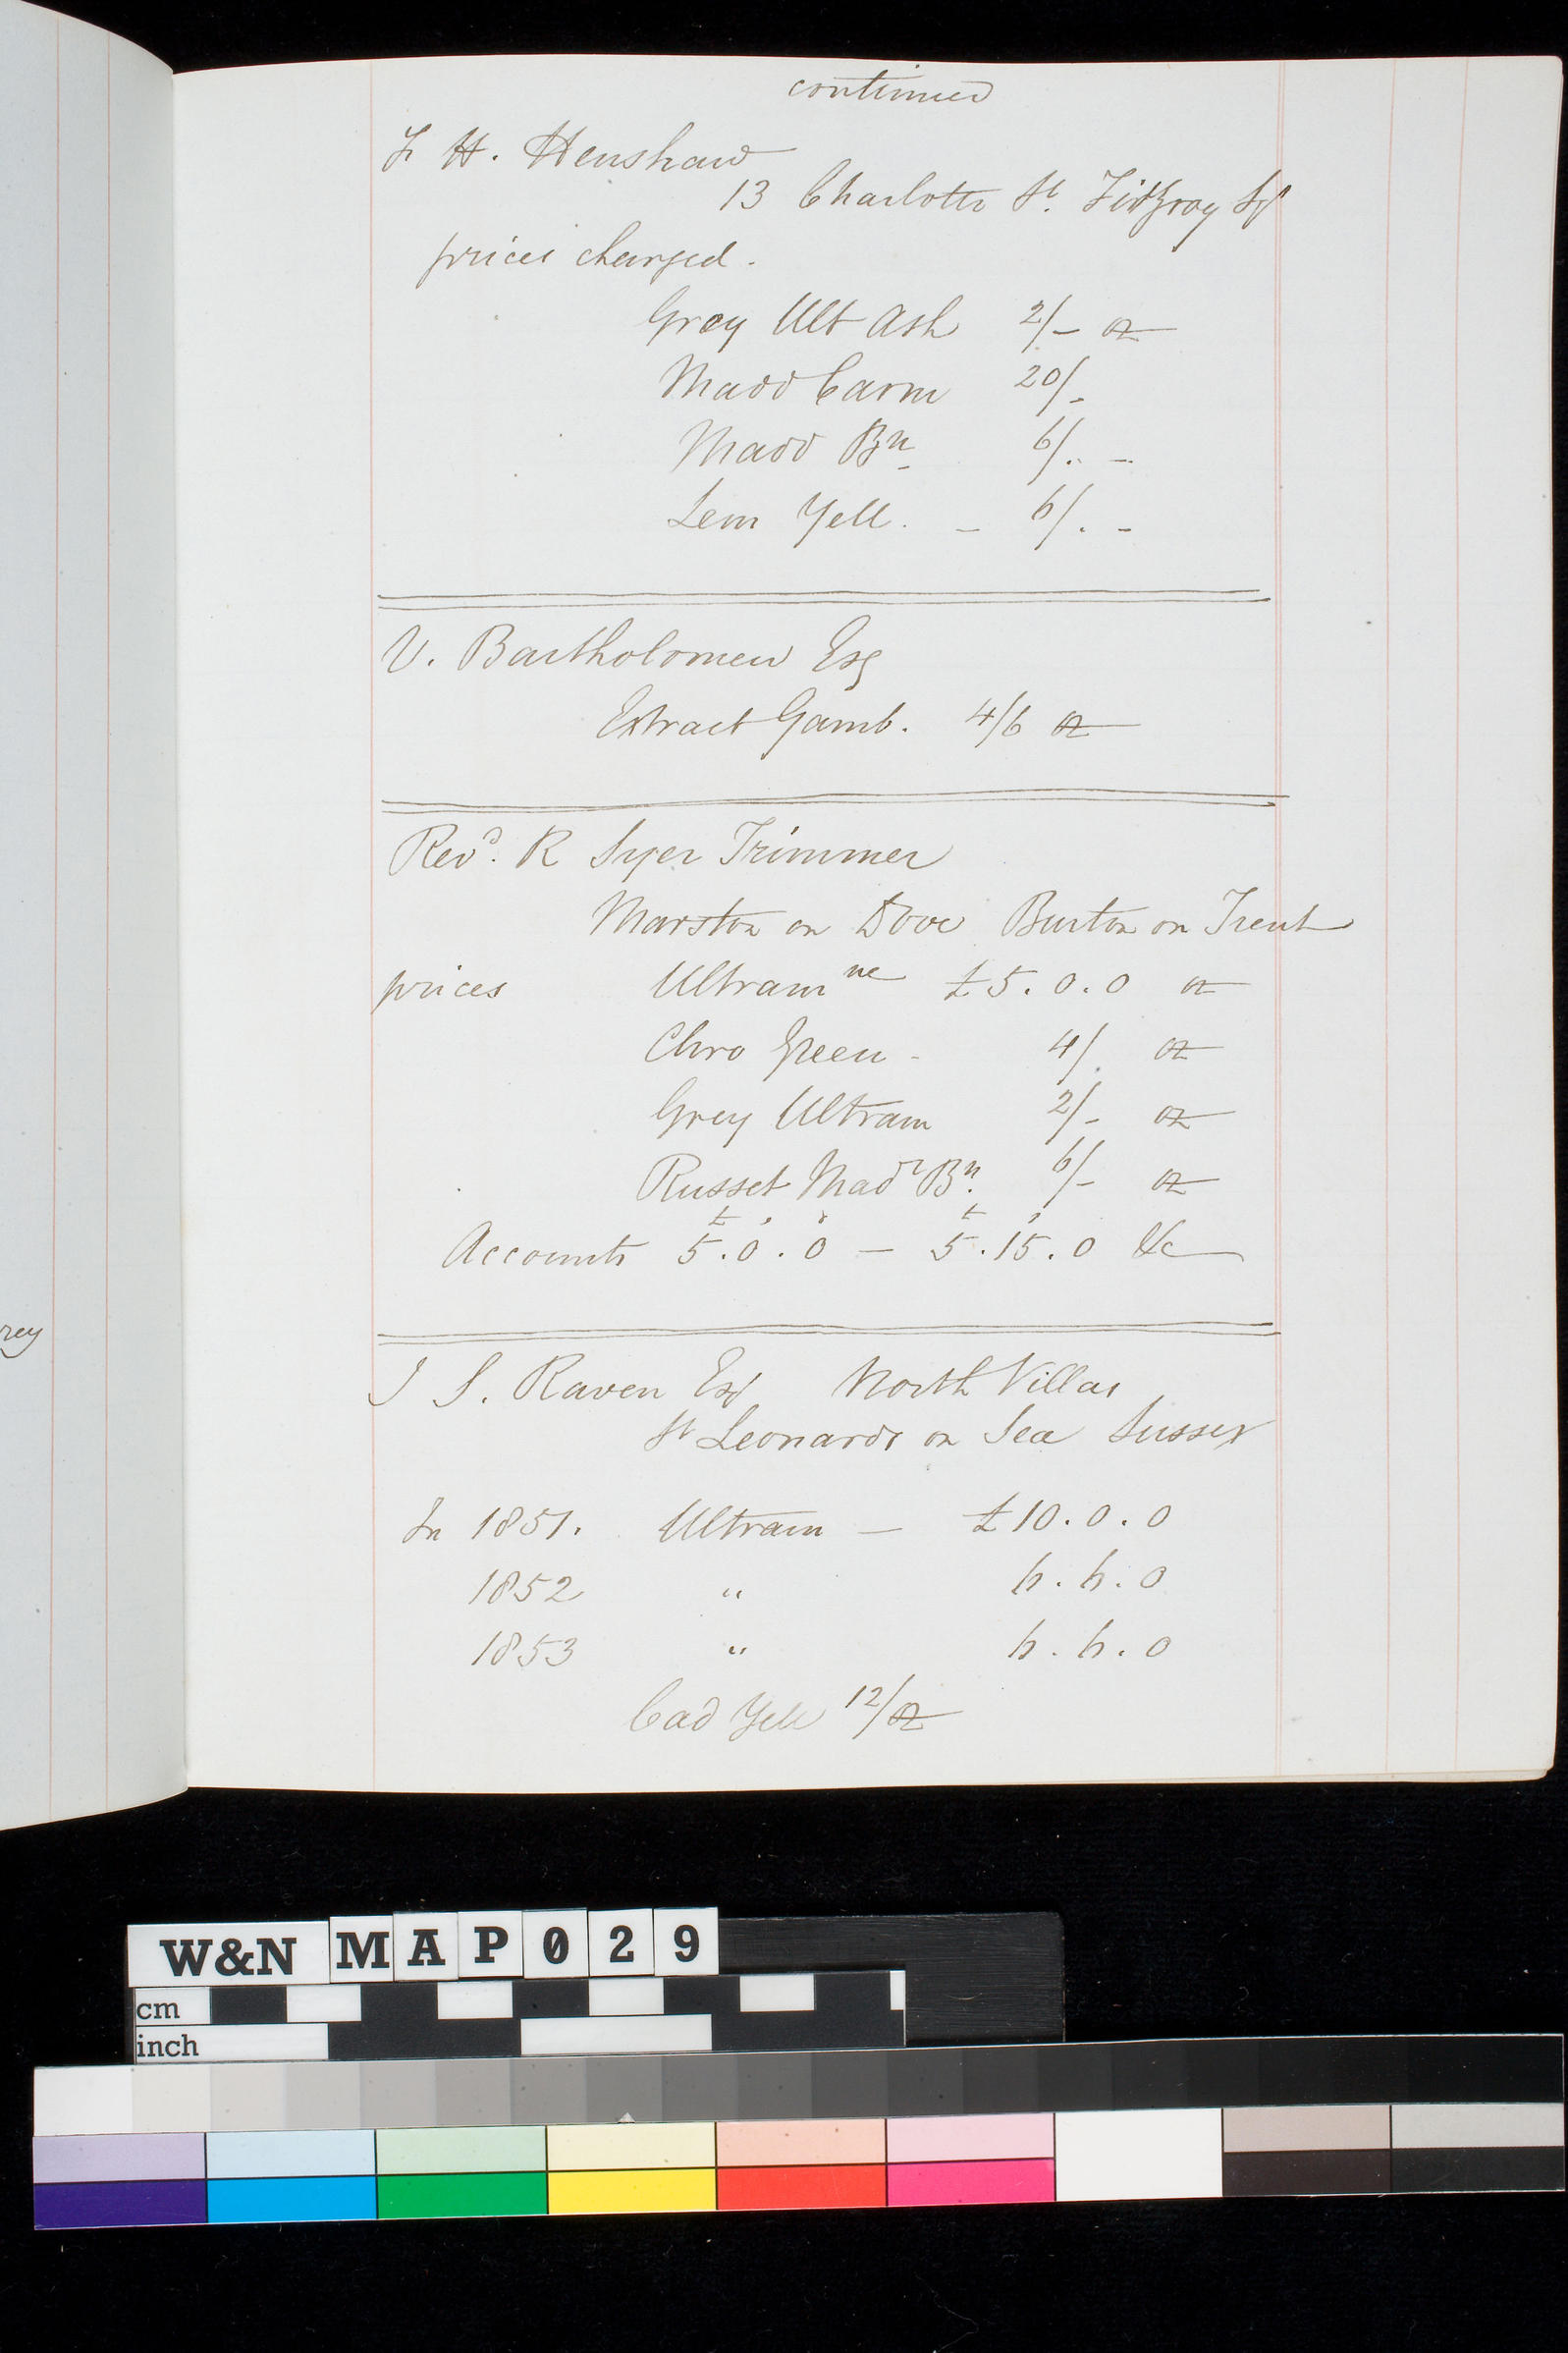 continued
F H. Henshaw
13 Charlotte St. Fitzroy Sqr
prices charged.
Grey Ult Ash 2/- oz
Madd Carm 20/-
Madd Bn 6/. -
Lem Yell. - 6/. -
V. Bartholomew Esq
Extract Gamb. 4/6 oz
Revd. R Syer Trimmer
Marston on Dove Burton on Trent
prices Ultramne £5.0.0 oz
Chro Green - 4/. oz
Grey Ultram 2/- oz
Russet Madr Bn. 6/- oz
Accounts £5.0.0 - £5.15.0 &c
J S. Raven Esq North Villas
St Leonards on Sea Sussex
In 1851. Ultram - £10.0.0
1852 "
1853 "
Cad Yell 12/oz
rey
W&N MAP029
cm
inch